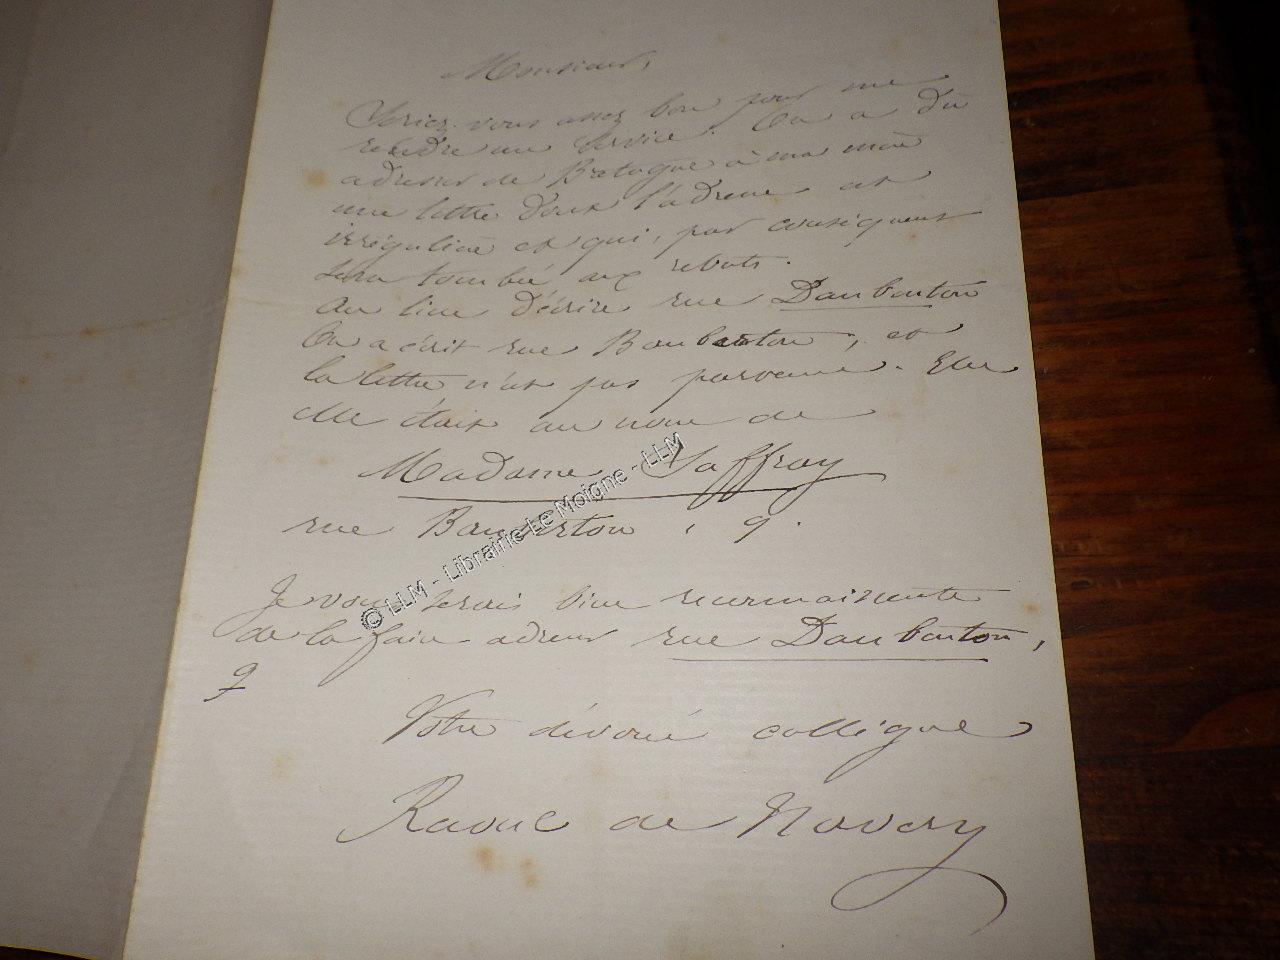 Monsieur,
Seriez-vous assez bon pour me
rendre un service. On a dû
adresser de Bretagne à ma mère
une lettre dont l'adresse est
irrégulière et qui, par conséquent
sera tombée aux rebuts.
Au lieu d'écrire rue Daubenton
On a écrit rue Bauberton, et
la lettre n'est pas parvenue.
elle était au nom de
Madame Saffray
rue Bauberton, 9.
Je vous serais bien reconnaissante
de la faire adresser rue Daubenton,
9
Votre dévoué collègue
Raoul de Navery
© LLM - Librairie Le Moigne - LLM